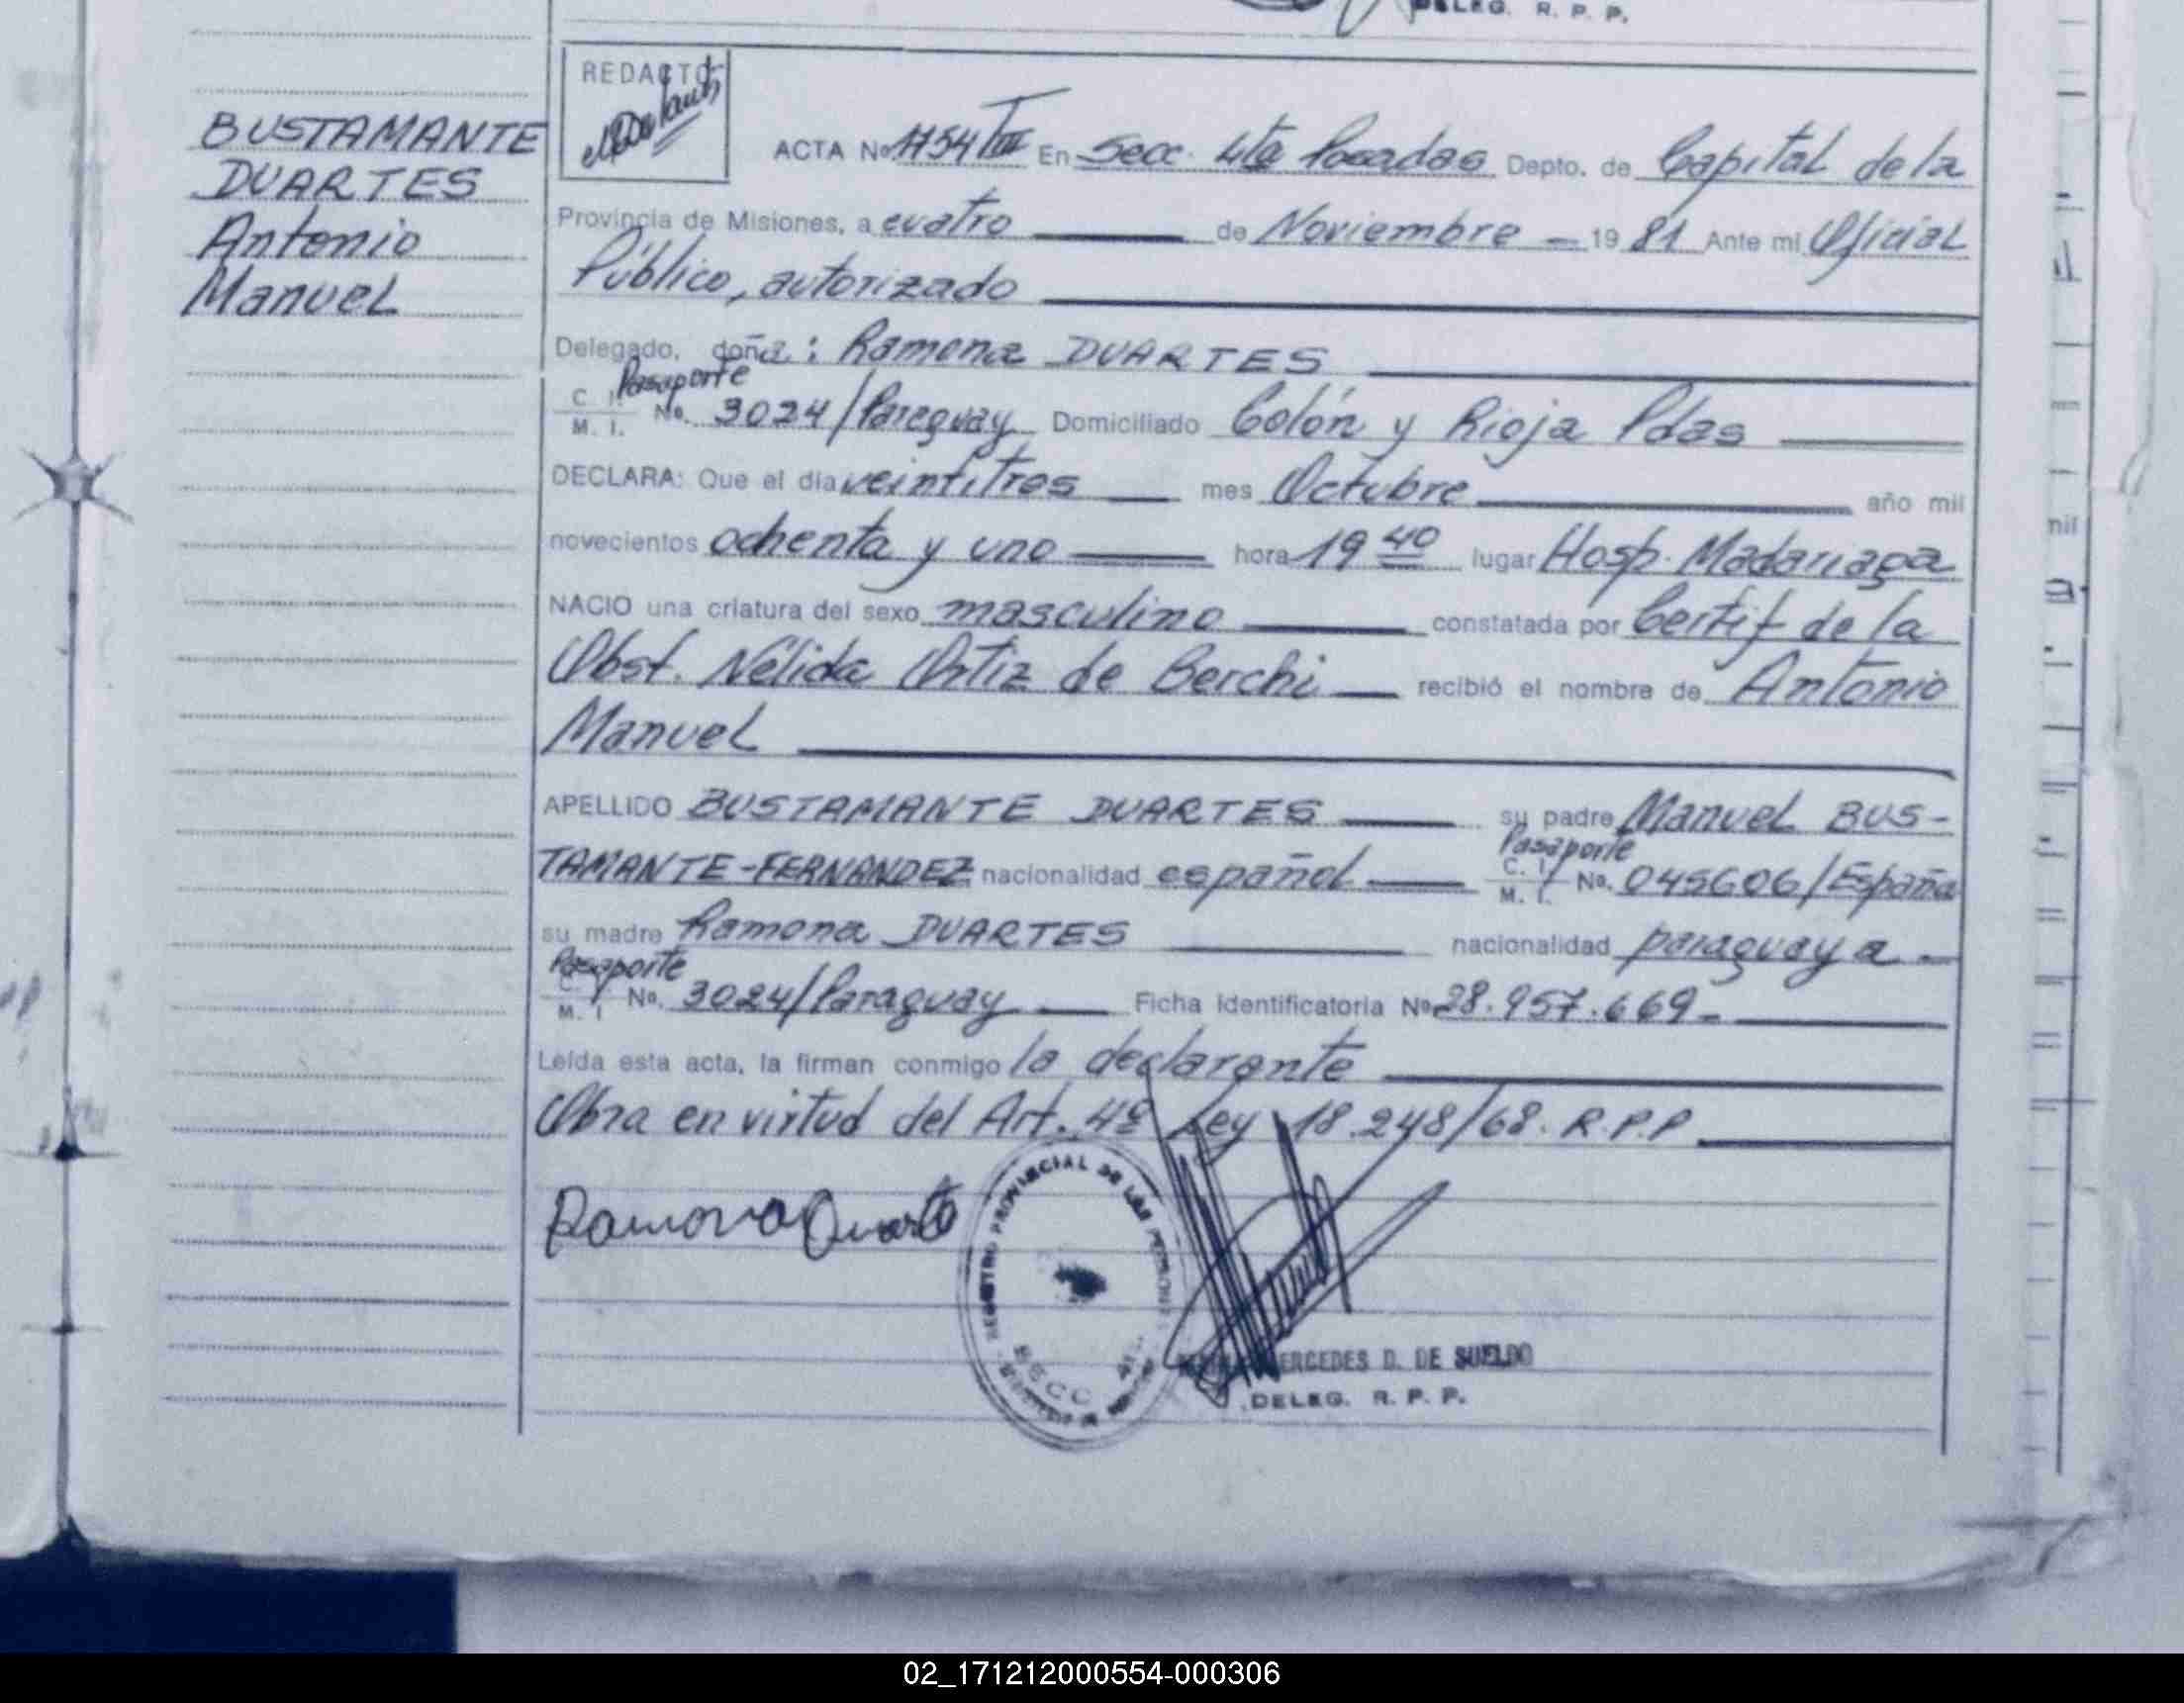 DELEG. R. P. P.
REDACTO
BUSTAMANTE
DUARTES
Antonio
Manuel
ACTA No 1754 TIII En Secc. 4ta Posadas Depto. de Capital de la
Provincia de Misiones, a cuatro de Noviembre - 19 81 Ante mi Oficial
Público, autorizado
Delegado, doña: Ramona DUARTES
Pasaporte
C. I. M. I. No. 3024/Paraguay Domiciliado Colón y Rioja Pdas
DECLARA: Que el día veintitres mes Octubre año mil
novecientos ochenta y uno hora 19 40 lugar Hosp. Madariaga
NACIO una criatura del sexo masculino constatada por Certif de la
Obst. Nélida Ortiz de Berchi recibió el nombre de Antonio
Manuel
APELLIDO BUSTAMANTE DUARTES su padre Manuel BUS-
Pasaporte
TAMANTE-FERNANDEZ nacionalidad español C. I. M. I. No. 045606/España
su madre Ramona DUARTES nacionalidad paraguaya -
Pasaporte
C. I. M. I No. 3024/Paraguay Ficha identificatoria No 28.957.669-
Leída esta acta, la firman conmigo la declarante
Obra en virtud del Art. 4º Ley 18.248/68. R.P.P
Ramona Duarte
REGISTRO PROVINCIAL DE LAS PERSONAS
SECC
MERCEDES D. DE SUELDO
DELEG. R. P. P.
02_171212000554-000306